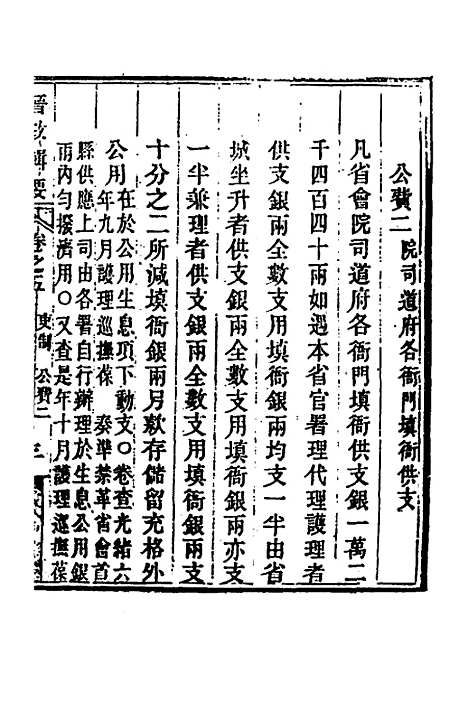 公費二院司道府各衙門填衙供支
凡省會院司道府各衙門填衙供支銀一萬二
千四百四十兩如遇本省官署理代理護理者
供支銀兩全數支用填衙銀兩均支一半由省
城坐升者供支銀兩全數支用填衙銀兩亦支
一半兼理者供支銀兩全數支用填衙銀兩支
十分之二所減填衙銀兩另款存儲留充格外
公用在於公用生息項下動支○卷查光緒六
年九月護理巡撫葆 奏準禁革省會首
縣供應上司由各署自行辦理於生息公用銀
兩內勻撥濟用○又查是年十月護理巡撫葆
晉政輯要 卷之五 吏制 公費二 三